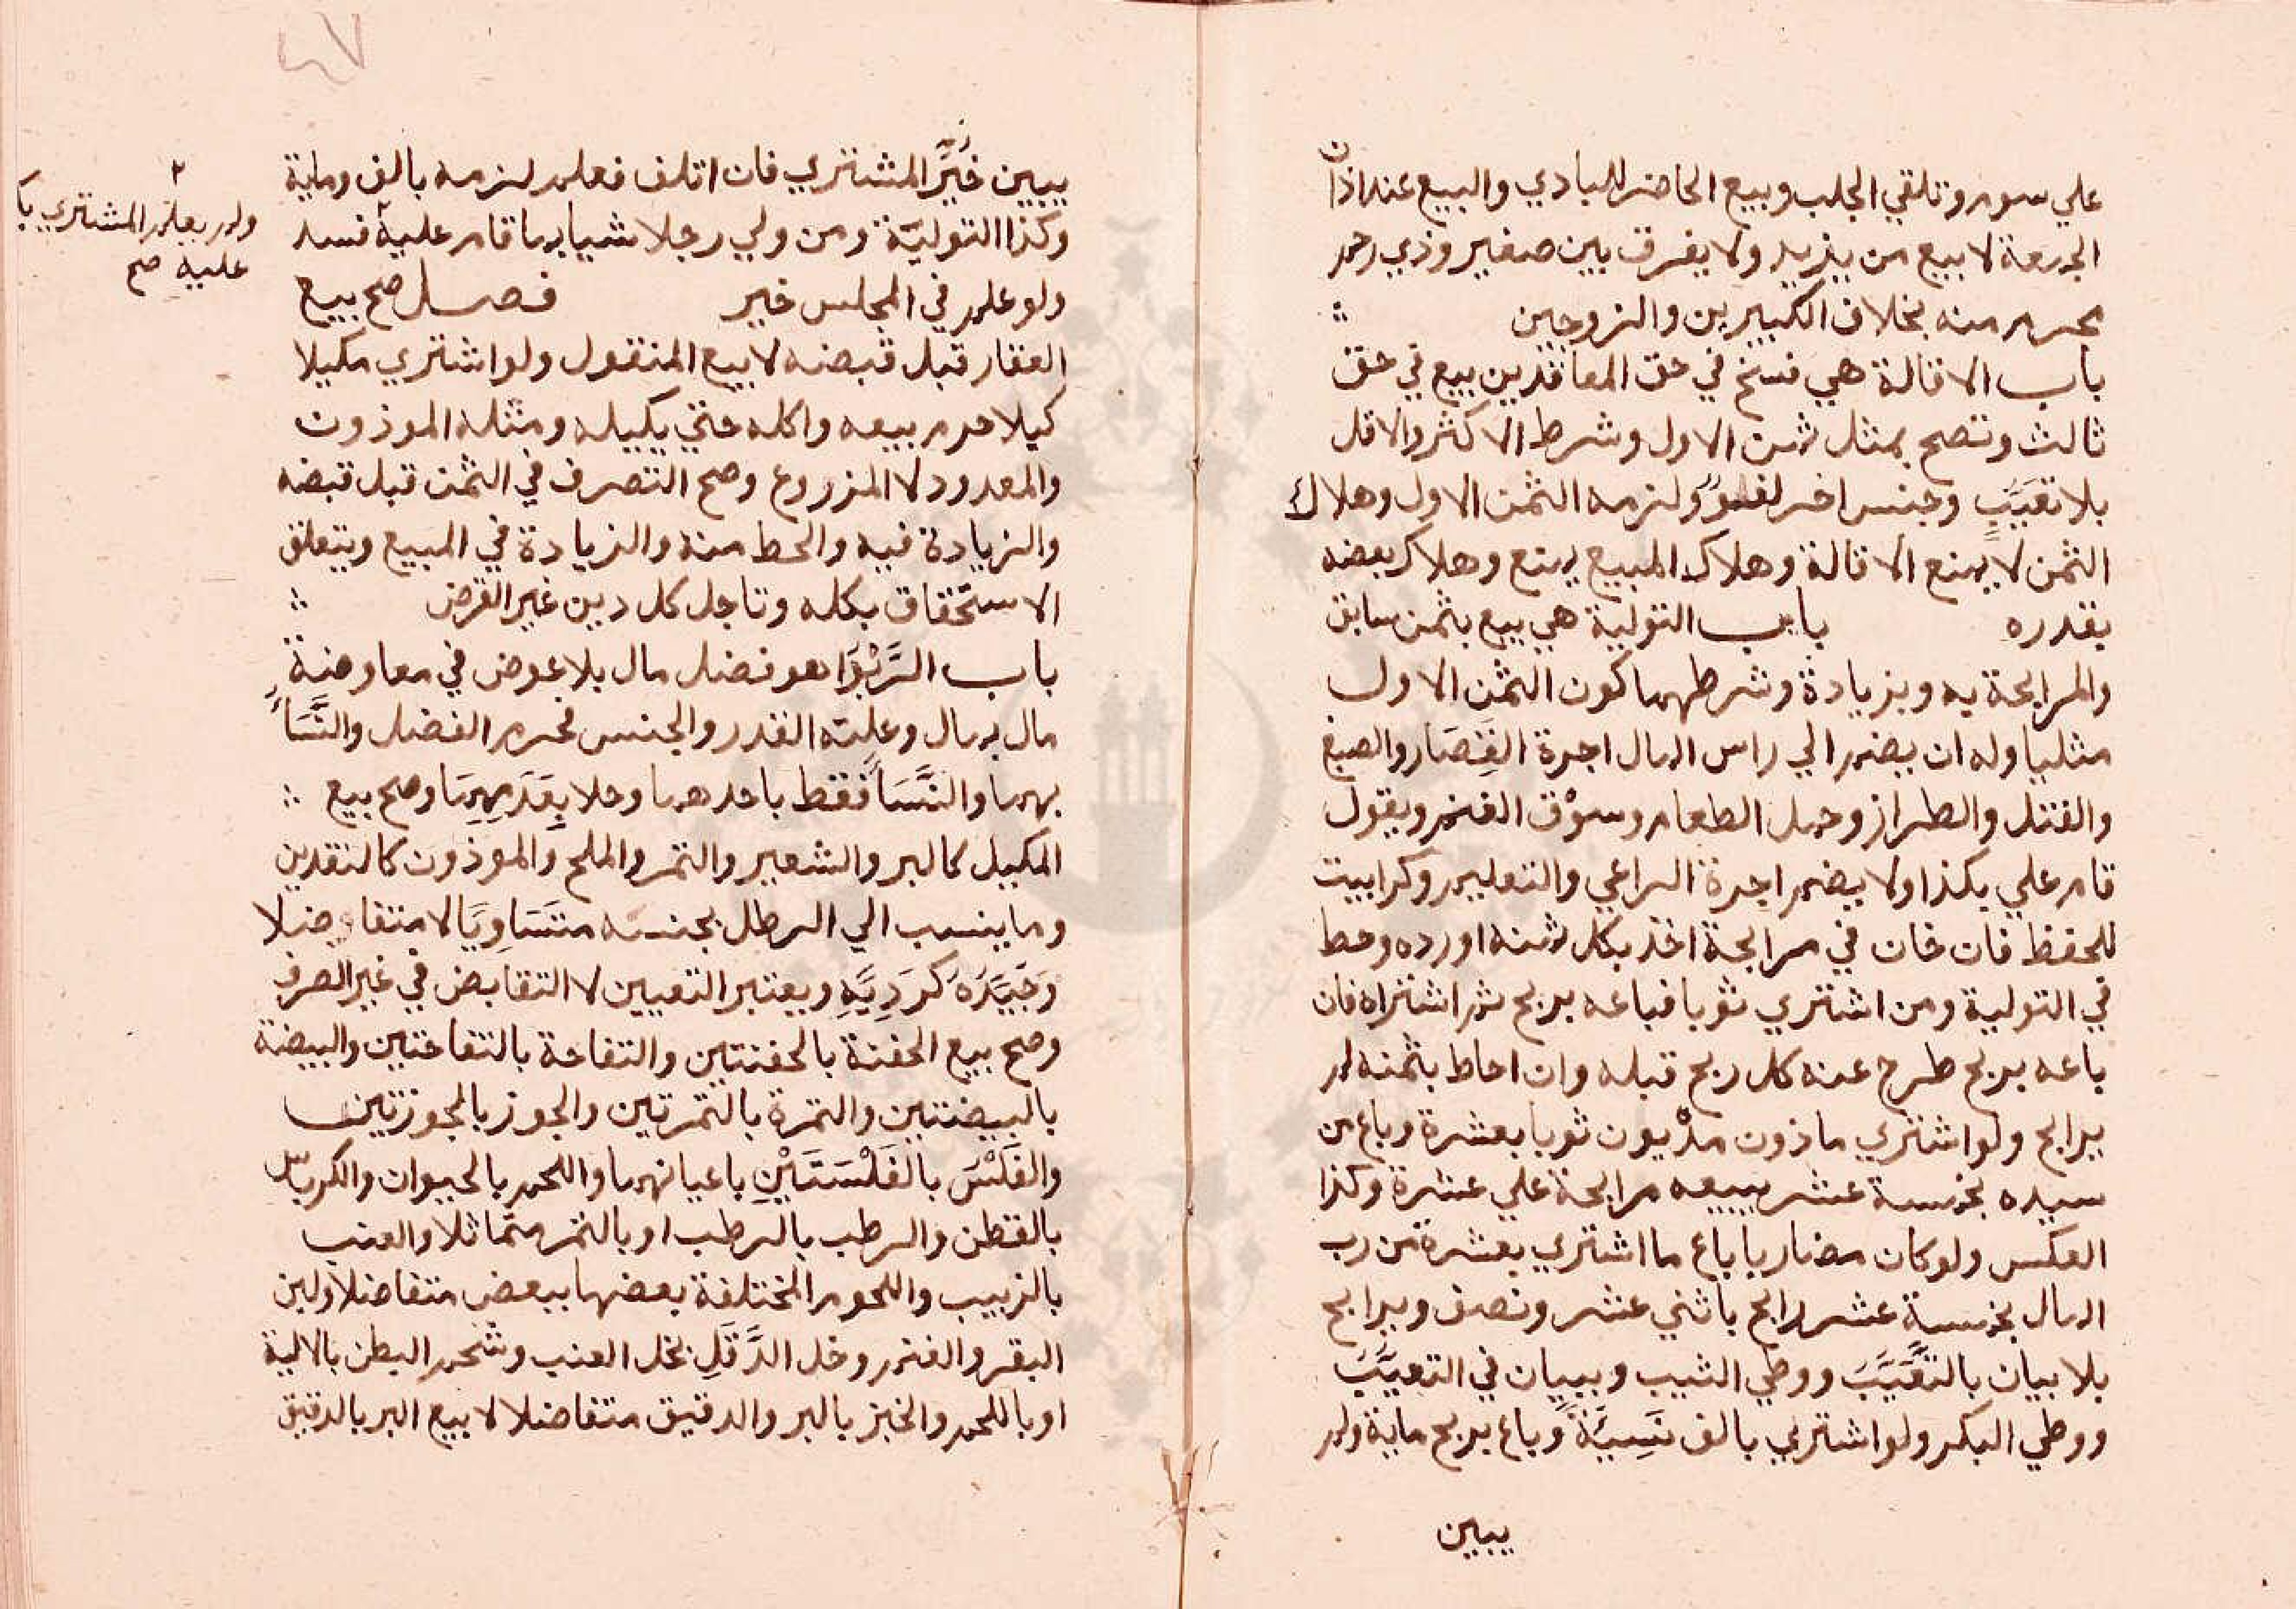 علي سوم وتلقي الجلب وبيع الحاضر للبادي والبيع عند اذان
الجمعة لا بيع من يزيد ولا يفرق بين صغير وذي رحم
محرم منه بخلاف الكبيرين والزوجين
باب الاقالة هي فسخ في حق المعاقدين بيع في حق
ثالث وتصح بمثل ثمن الاول وشرط الاكثر والاقل
بلا تعَيَّبٍ وجنس اخر لغلوٌ ولزمه الثمن الاول وهلاك
الثمن لا يمنع الاقالة وهلاك المبيع يمنع وهلاك بعضه
بقدره باب التولية هي بيع بثمن سابق
والمرابحة به وبزيادة وشرطهما كون الثمن الاول
مثليا وله ان يضم الي راس المال اجرة القِصَار والصبغ
والفتل والطراز وحمل الطعام وسوْق الغنم ويقول
قام علي بكذا ولا يضم اجرة الراعي والتعليم وكرا بيت
للحفظ فان خان في مرابحة اخذ بكل ثمنه او رده وحط
في التولية ومن اشتري ثوبا فباعه بربح ثم اشتراه فان
باعه بربح طرح عنه كل ربح قبله وان احاط بثمنه لم
يرابح ولو اشتري ماذون مدْيون ثوبا بعشرة وباع من
سيده بخمسة عشر يبيعه مرابحة علي عشرة وكذا
العكس ولو كان مضاربا باع ما اشتري بعشرة من رب
المال بخمسة عشر رابح باثني عشر ونصف ويرابح
بلا بيان بالتعَيَّبَ ووطي الثيب وببيان في التعيَّبَ
ووطي البكر ولو اشتري بالف نَسِيَّةً وباع بربح ماية ولم
يبين
يبين خُيِّرَ المشتري فان اتلف فعلم لزمه بالف وماية
وكذا التوليَة ومن ولي رجلا شيا بما قام عليه ٢ فسد
ولو علم في المجلس خير فصل صح بيع
العقار قبل قبضه لا بيع المنقول ولو اشتري مكيلا
كيلا حرم بيعه واكله حتي يكيله ومثله الموزون
والمعدود لا المزروع وصح التصرف في الثمن قبل قبضه
والزيادة فيه والحط منه والزيادة في المبيع ويتعلق
الاستحقاق بكله وتاجل كل دين غير القرض
باب الرَّبْوَا هو فضل مال بلا عوض في معاوضة
مال بمال وعلته القدر والجنس فحرم الفضل والنَّسَأُ
بهما والنَّسَأُ فقط باحدهما وحلا بِعَدَمِهِمَا وصح بيع
المكيل كالبر والشعير والتمر والملح والموزون كالنقدين
وما ينسب الي الرطل بجنسه متَسَاوِيَا لا متفاضلا
وَجَيِّدَهُ كَرَدِيَّهِ ويعتبر التعيين لا التقابض في غير الصرف
وصح بيع الحفنة بالحفنتين والتفاحة بالتفاحتين والبيضة
بالبيضتين والتمرة بالتمرتين والجوز بالجوزتين
والفَلْسَ بالفَلْسَتَيْنِ باعيانهما واللحم بالحيوان والكرباس
بالقطن والرطب بالرطب او بالتمر متماثلا والعنب
بالزبيب واللحوم المختلفة بعضها ببعض متفاضلا ولبن
البقر والغنم وخل الدَّقَلِ بخل العنب وشحم البطن بالالية
او باللحم والخبز بالبر والدقيق متفاضلا لا بيع البر بالدقيق
٢
ولم يعلم المشتري بكم
عليه صح